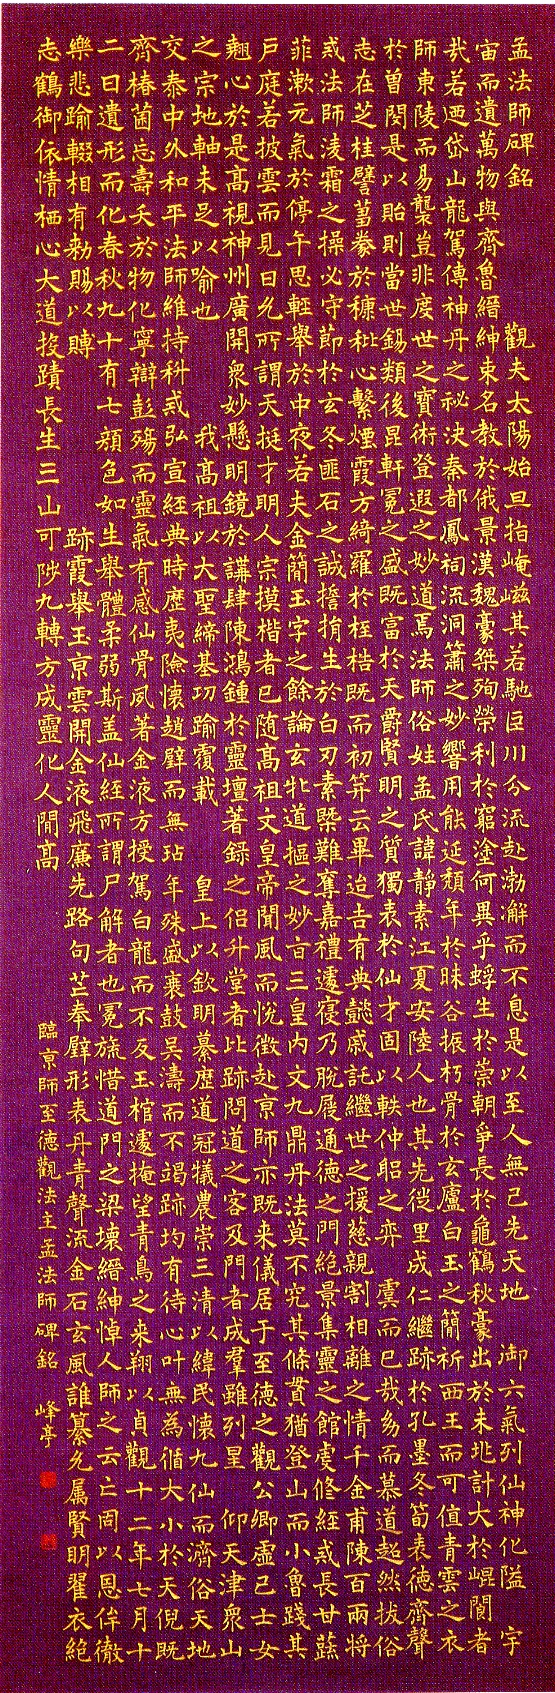 孟法師碑銘 觀夫太陽始旦指崦嵫其若馳巨川分流赴渤澥而不息是以至人無己先天地 御六氣列仙神化隘 宇
宙而遺萬物與齊魯縉紳束名教於俄景漢魏豪桀殉榮利於窮塗何異乎蜉生於崇朝爭長於龜鶴秋豪出於未兆計大於崐閬者
㢤若迺岱山龍駕傳神丹之秘決秦都鳳祠流洞簫之妙響用能延頹年於昧谷振朽骨於玄廬白玉之簡祈西王而可值青雲之衣
師東陵而易襲豈非度世之寶術登遐之妙道焉法師俗姓孟氏諱靜素江夏安陸人也其先徙里成仁繼跡於孔墨冬筍表德齊聲
於曾閔是以貽則當世錫類後昆軒冕之盛既富於天爵賢明之質獨表於仙才固以軼仲昭之弈 虞而已哉幼而慕道超然拔俗
志在芝桂譬蒭豢於糠秕心繫煙霞方綺羅於桎梏既而初筓云畢迨吉有典懿戚託繼世之援慈親割相離之情千金甫陳百兩將
戒法師凌霜之操必守節於玄冬匪石之誠擔捐生於白刃素槩難奪嘉禮遽寢乃脫屣通德之門絕景集靈之館虔修經戒長甘蔬
菲漱元氣於停午思輕舉於中夜若夫金簡玉字之餘論玄牝道摳之妙旨三皇内文九鼎丹法莫不究其條貫猶登山而小魯踐其
戶庭若披雲而見日允所謂天挺才明人宗摸楷者已隨高祖文皇帝聞風而悅徵赴京師亦既来儀居于至德之觀公卿虛己士女
翹心於是高視神州廣開眾妙懸明鏡於講肆陳鴻鍾於靈壇著錄之侣升堂者比跡問道之客及門者成羣雖列星 仰天津眾山
之宗地軸未足以喻也 我高祖以大聖締基功踰覆載 皇上以欽明纂歷道冠犧農崇三清以緯民懷九仙而濟俗天地
交泰中外和平法師維持科戒弘宣經典時歷夷險懷趙璧而無玷年殊盛衰鼓吳濤而不竭跡均有待心叶無為循大小於天倪既
齊椿菌忘壽夭於物化寧辯彭殤而靈氣有感仙骨夙著金液方授駕白龍而不反玉棺遽掩望青鳥之来翔以貞觀十二年七月十
二日遺形而化春秋九十有七顏色如生舉體柔弱斯盖仙經所謂尸解者也冕旒惜道門之梁壞縉紳悼人師之云亡罔以恩侔徹
樂悲踰輟相有勑賜以賻 跡霞舉玉京雲開金液飛廉先路句芒奉璧形表丹青聲流金石玄風誰纂允属賢明翟衣絕
志鶴御依情栖心大道投蹟長生三山可陟九轉方成靈化人間高
臨京師至德觀法主孟法師碑銘 峰亭